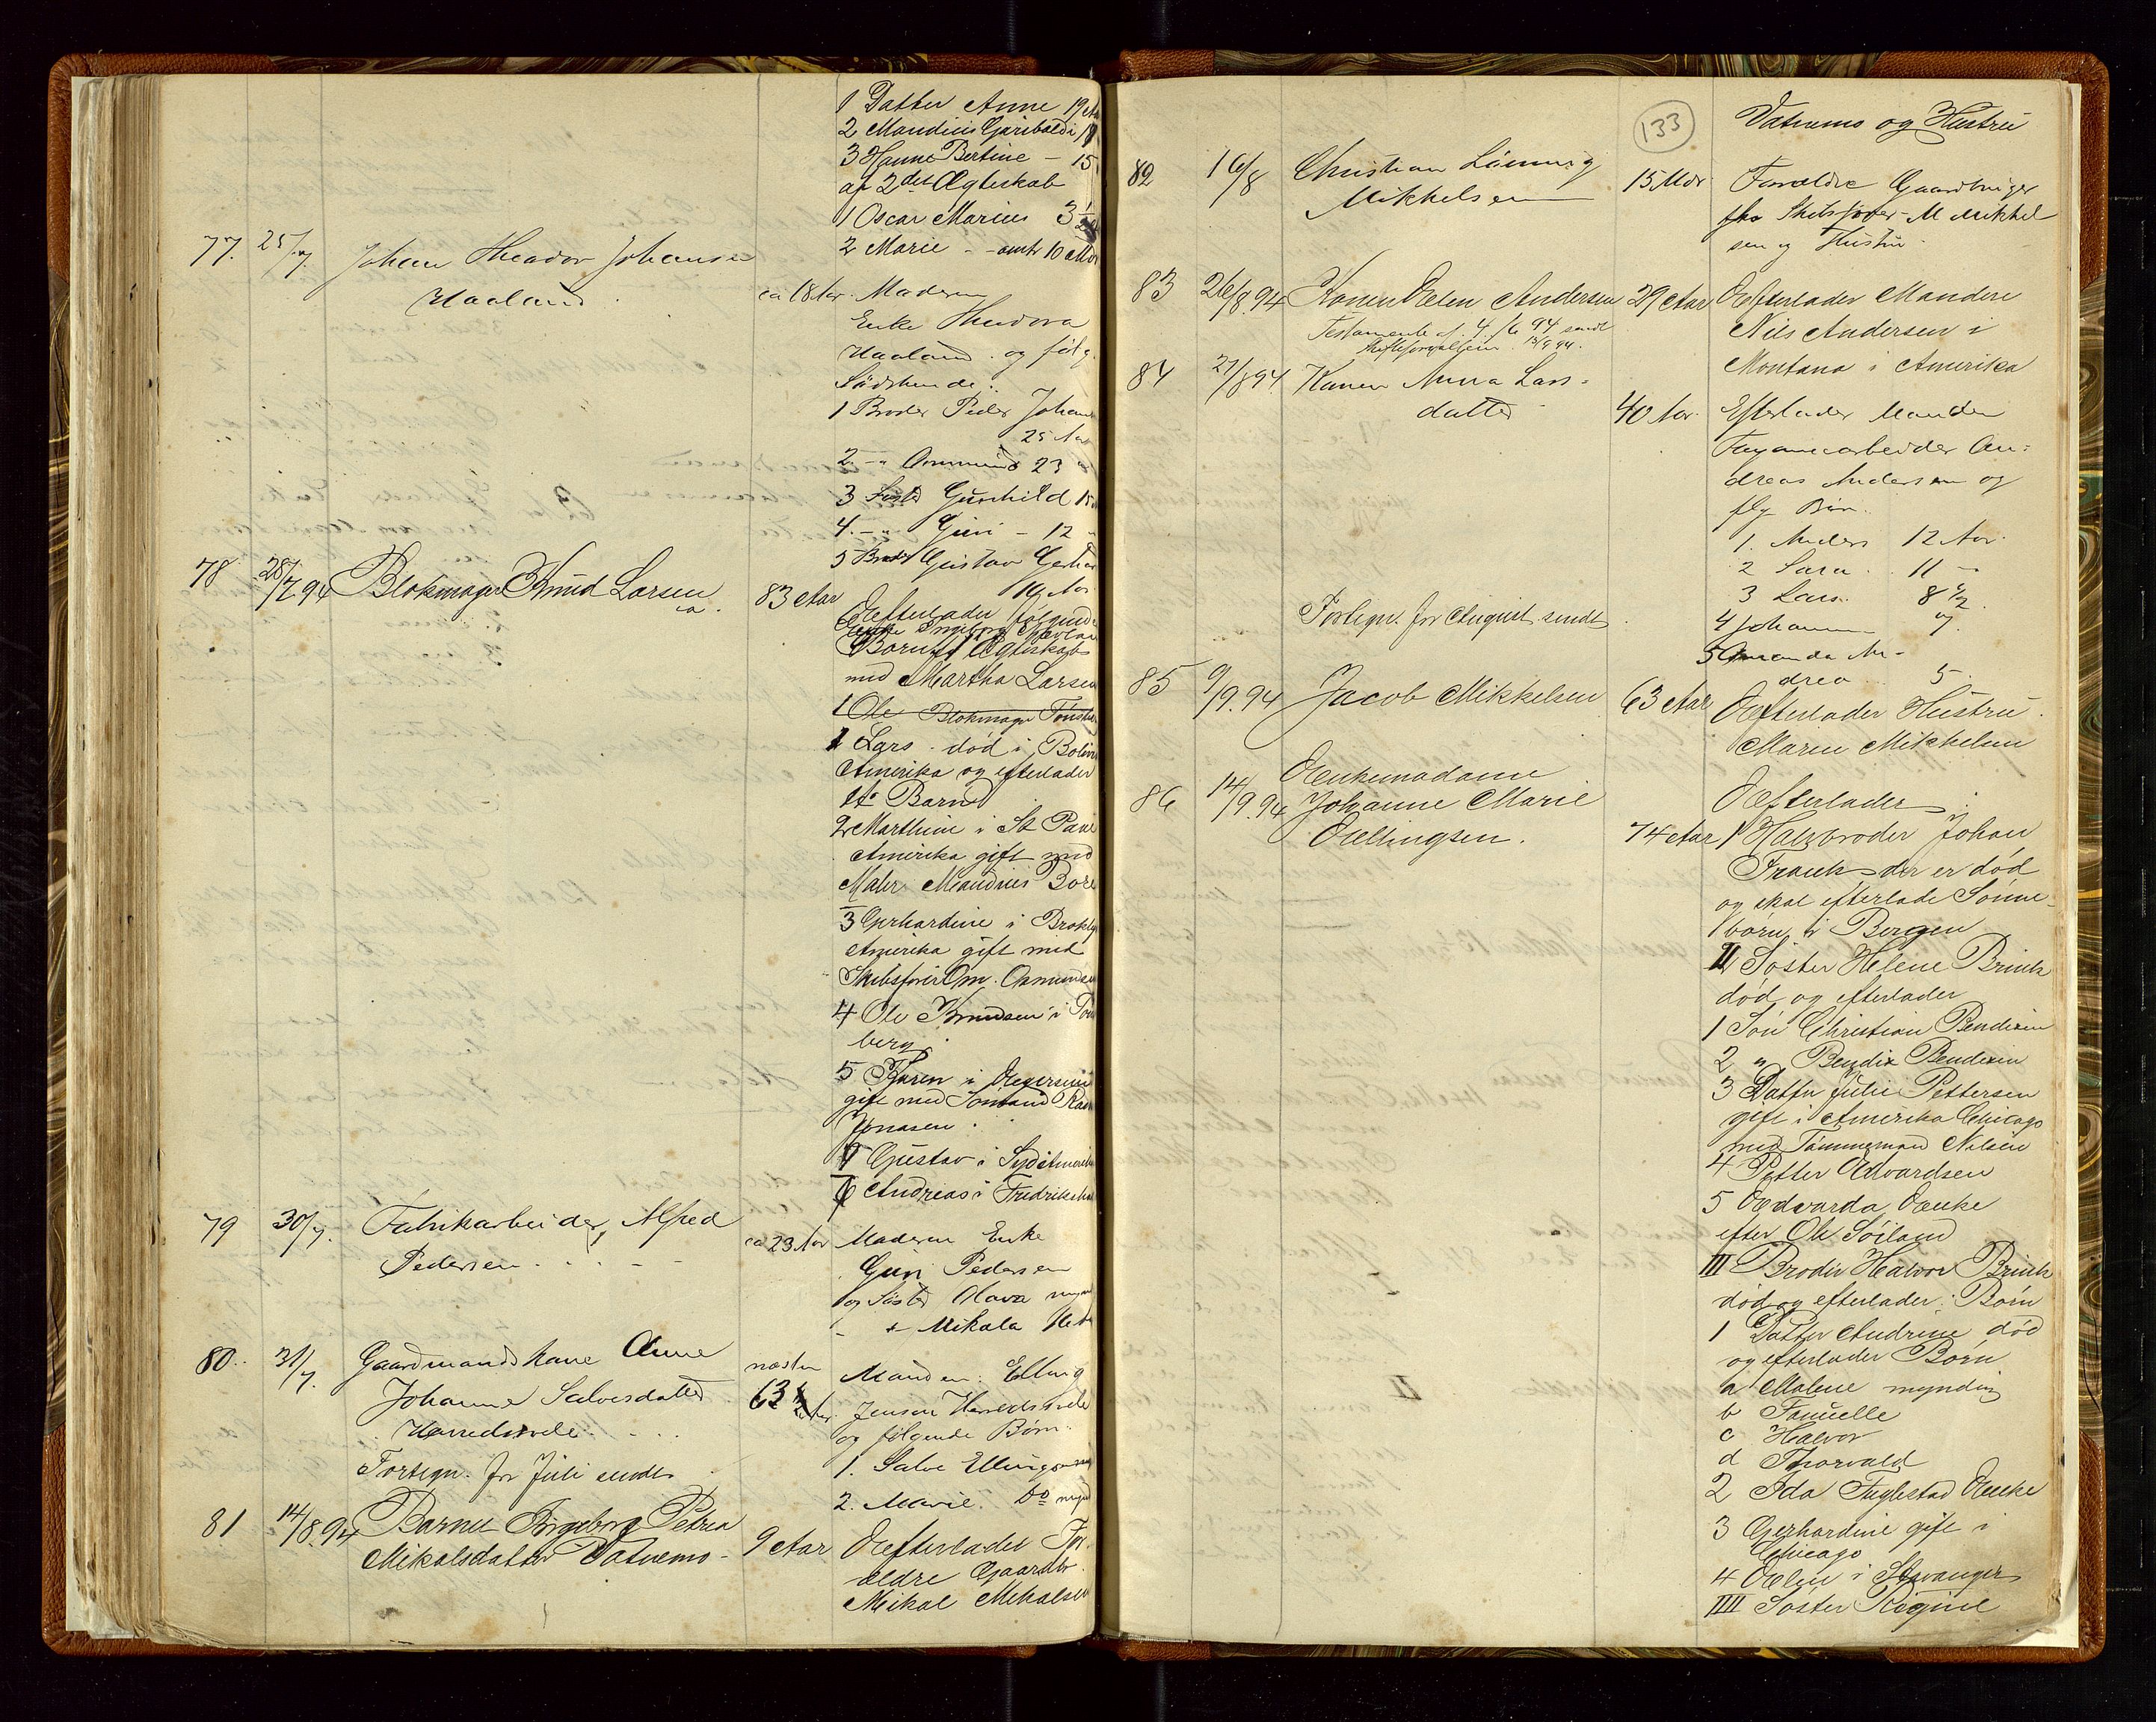 1 Datter Anne 19 Aar
2 Mandius Garibaldi
3 Hanne Bertine – 15
af 2det Ægteskab
1 Oscar Marius 3
2 Marie - - omtr 10 Mdr
77. 25/7. Johan Theodor Johansen
Haaland.
ca 18 Aar. Moderen
Enke Theodora
Haaland. og følg.
Södskende:
1 Broder Peder Johan
25 Aar
2 -"- Ommund 23 "
3 Söster Gunhild 15
4. -"- Guri - 12 "
5 Broder Gustav Gerhard
10 Aar.
78 28/7 94 Blokmager Knud Larsen 83 Aar
Efterlader følgende
Enke Ingeborg
Børn af Ægteskab
med Martha Larsen
1 Ole Blokmager Tønsberg
1 Lars. död i
Amerika og efterlader
et Barn
2 Marthine i St Paul
Amerika gift med
Maler Maudius
3 Gerhardine i Brokly
Amerika gift med
Skibsfører Om. Osmundsen
4 Ole Knudsen i Tøns
berg.
5 Karen i Egersund
gift med Sömand
Jonasen.
Gustav i Sydamerika
Andreas i Fredrikshald
79 30/7. Fabrikarbeider, Alfred
Pedersen . . . - -
ca 23 Aar Moderen Enke
Guri Pedersen
og Söster Olava mynd
- + Mikala
80. 31/7. Gaardmandskone Anne
Johanne Salvesdatter
Herredsvele. . . .
næsten
63 Aar. Manden: Elling
Jensen Herredsvele
og følgende Børn:
1. Salve Ellingsen
2. Marie. Do mynd
Fortegn. for Juli sendt
81 14/8.94 Barnet Ingeborg Petrea
Mikalsdatter Vatnemo -
9 Aar Efterlader For
ældre Gaardbr.
Mikal Mikalsen
133
Vatnemo og Hustru
82 16/8 Christian Lauring
Mikkelsen
15 Mdr Forældre Gaardbruger
fhv Skibsfører M Mikkel
sen og Hustru.
83 26/8.94 Konen Elen Andersen 29 Aar Efterlader Manden
Testamente af 4/6 94 sendt
Skifteforvalteren 13/9 94.
Nils Andersen i
Montana i Amerika
84 27/8 94. Konen Anna Lars-
datter
40 Aar. Efterlader Manden
Fayancearbeider An-
dreas Andersen og
flg. Børn.
1. Anders 12 Aar.
2 Sara. 11 -
3 Lars. 8 1/2
4 Johanne 7.
5 Amanda An-
drea 5.
Fortegn. for August sendt
85 9/9.94 Jacob Mikkelsen 63 Aar Efterlader Hustru.
Maren Mikkelsen
86 14/9.94 Enkemadame
Johanne Marie
Ellingsen.
74 Aar
Efterlader:
1 Halvbroder Johan
Frank der er død
og skal efterlade Sønne-
børn i Bergen
II Söster Helene Brink
död og efterlader
1 Sön Christian Bendixen
2 " Bendix Bendixen
3 Datter Julie Pettersen
gift i Amerika Chicago
med Tømmermand Nilsen
4 Petter Edvardsen
5 Edvarda Enke
efter Ole Söiland
III Broder Halvor Brink
död og efterlader: Børn
1 Datter Andrine død
og efterlader Børn
a Malene myndig
b Samuelle
c Halvor
d Thorvald
2 Ida Fuglestad Enke
3 Gerhardine gift i
Chicago
4 Elen i Stavanger
IIII Søster Regine